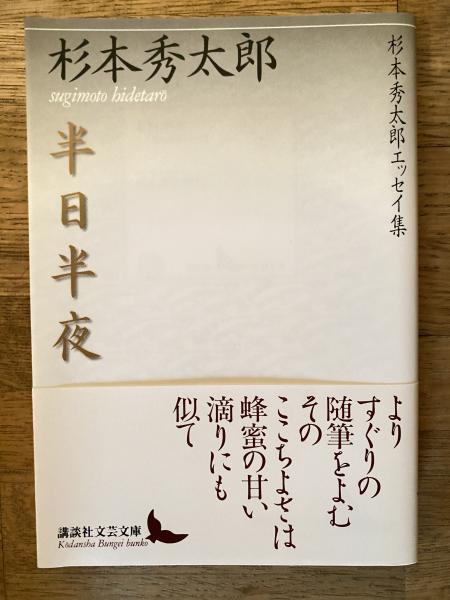 杉本秀太郎
sugimoto hidetarō
半日半夜
杉本秀太郎エッセイ集
より
すぐりの
随筆をよむ
その
ここちよさは
蜂蜜の甘い
滴りにも
似て
講談社文芸文庫
Kōdansha Bungei bunko